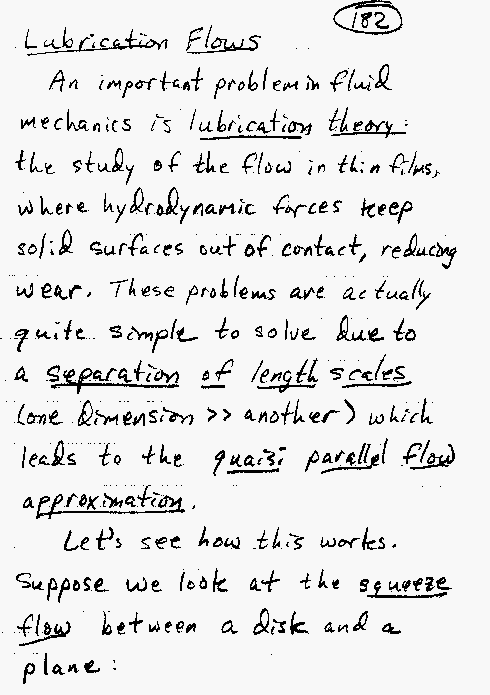 182
Lubrication Flows
An important problem in fluid
mechanics is lubrication theory:
the study of the flow in thin films,
where hydrodynamic forces keep
solid surfaces out of contact, reducing
wear. These problems are actually
quite simple to solve due to
a separation of length scales
(one dimension >> another) which
leads to the quaisi parallel flow
approximation.
Let's see how this works.
Suppose we look at the squeeze
flow between a disk and a
plane: